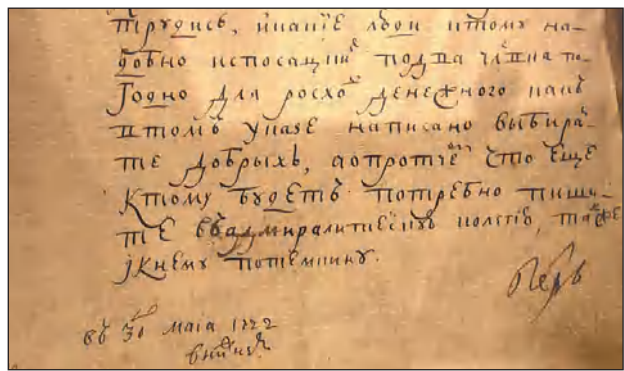 трудись, люди ктому на-
добно подва члвка по-
годно для росхоⷣ денежного какъ
втомъ указе написано выбира-
те добрыхъ, апротчеⷨ что еще
ктому будетъ потребно пиши-
те въадмиралитескую колегию, также
їкнему потемкину.
Петръ
въ маиа 1722